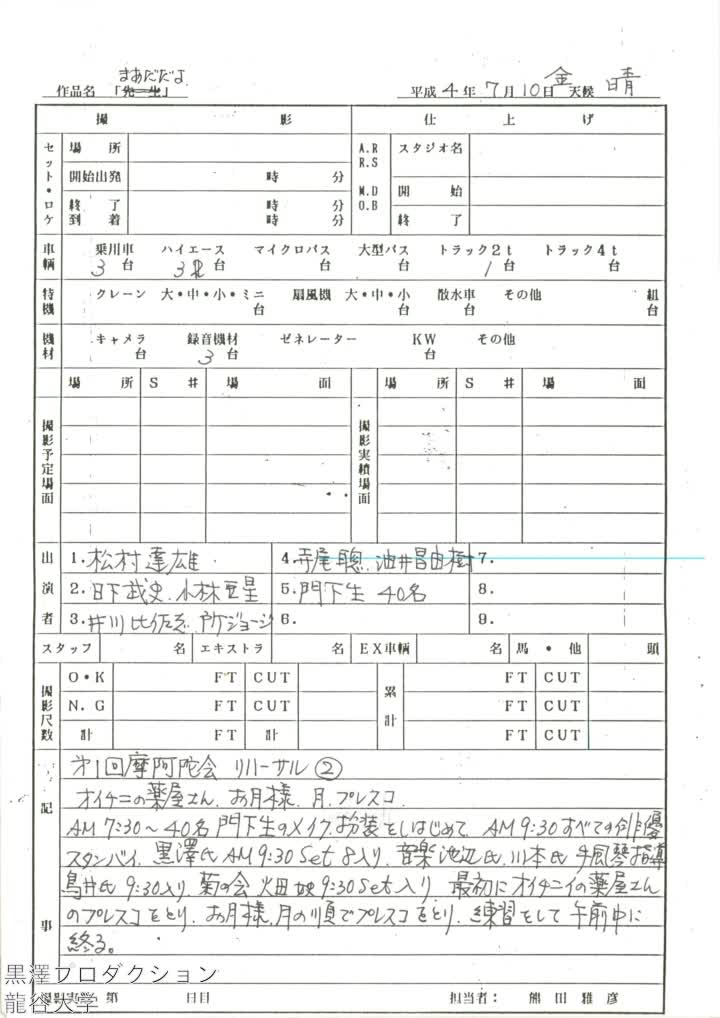 まあだだよ
作品名 「先生」 平成4年7月10日金 天候 晴
撮影 仕上げ
セット・ロケ 場所 A.R R.S スタジオ名
開始出発 時 分 M.D O.B 開始
終了到着 時 分 時 分 終了
車輌 乗用車 ハイエース マイクロバス 大型バス トラック2t トラック4t
3台 3台 台 台 1台 台
特機 クレーン 大・中・小・ミニ 扇風機 大・中・小 散水車 その他 組
台 台 台 台
機材 キャメラ 録音機材 ゼネレーター KW その他
台 3台 台
場所 S # 場面 場所 S # 場面
撮影予定場面 撮影実績場面
出演者 1.松村達雄 4.寺尾聰.油井昌由樹 7.
2.日下武史.小林亜星 5.門下生 40名 8.
3.井川比佐志.所ジョージ 6. 9.
スタッフ 名 エキストラ 名 EX車輌 名 馬・他 頭
撮影尺数 O・K FT CUT 累計 FT CUT
N.G FT CUT FT CUT
計 FT 計 FT CUT
記事 オ1回摩阿陀会 リハーサル②
オイチニの薬屋さん.お月様.月.プレスコ.
AM7:30〜40名門下生のメイク.扮装をしはじめて.AM9:30すべての俳優
スタンバイ.黒澤氏AM9:30 Set入り.音楽池辺氏.川本氏 手風琴指導
鳥井氏9:30入り.菊の会 畑 9:30Set入り.最初にオイチニイの薬屋さん
のプレスコをとり.お月様.月の順でプレスコをとり.練習をして午前中に
終る。
黒澤プロダクション
龍谷大学
撮影実数 第 日目 担当者: 熊田雅彦